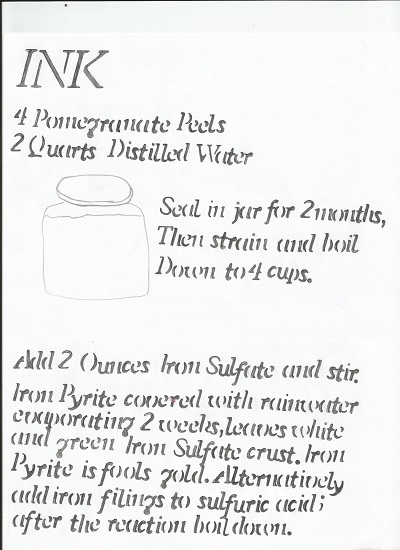 INK
4 Pomegranate Peels
2 Quarts Distilled Water
Seal in jar for 2 months,
Then strain and boil
Down to 4 cups.
Add 2 Ounces Iron Sulfate and stir.
Iron Pyrite covered with rainwater
evaporating 2 weeks, leaves white
and green Iron Sulfate crust. Iron
Pyrite is fools gold. Alternatively
add iron filings to sulfuric acid;
after the reaction boil down.